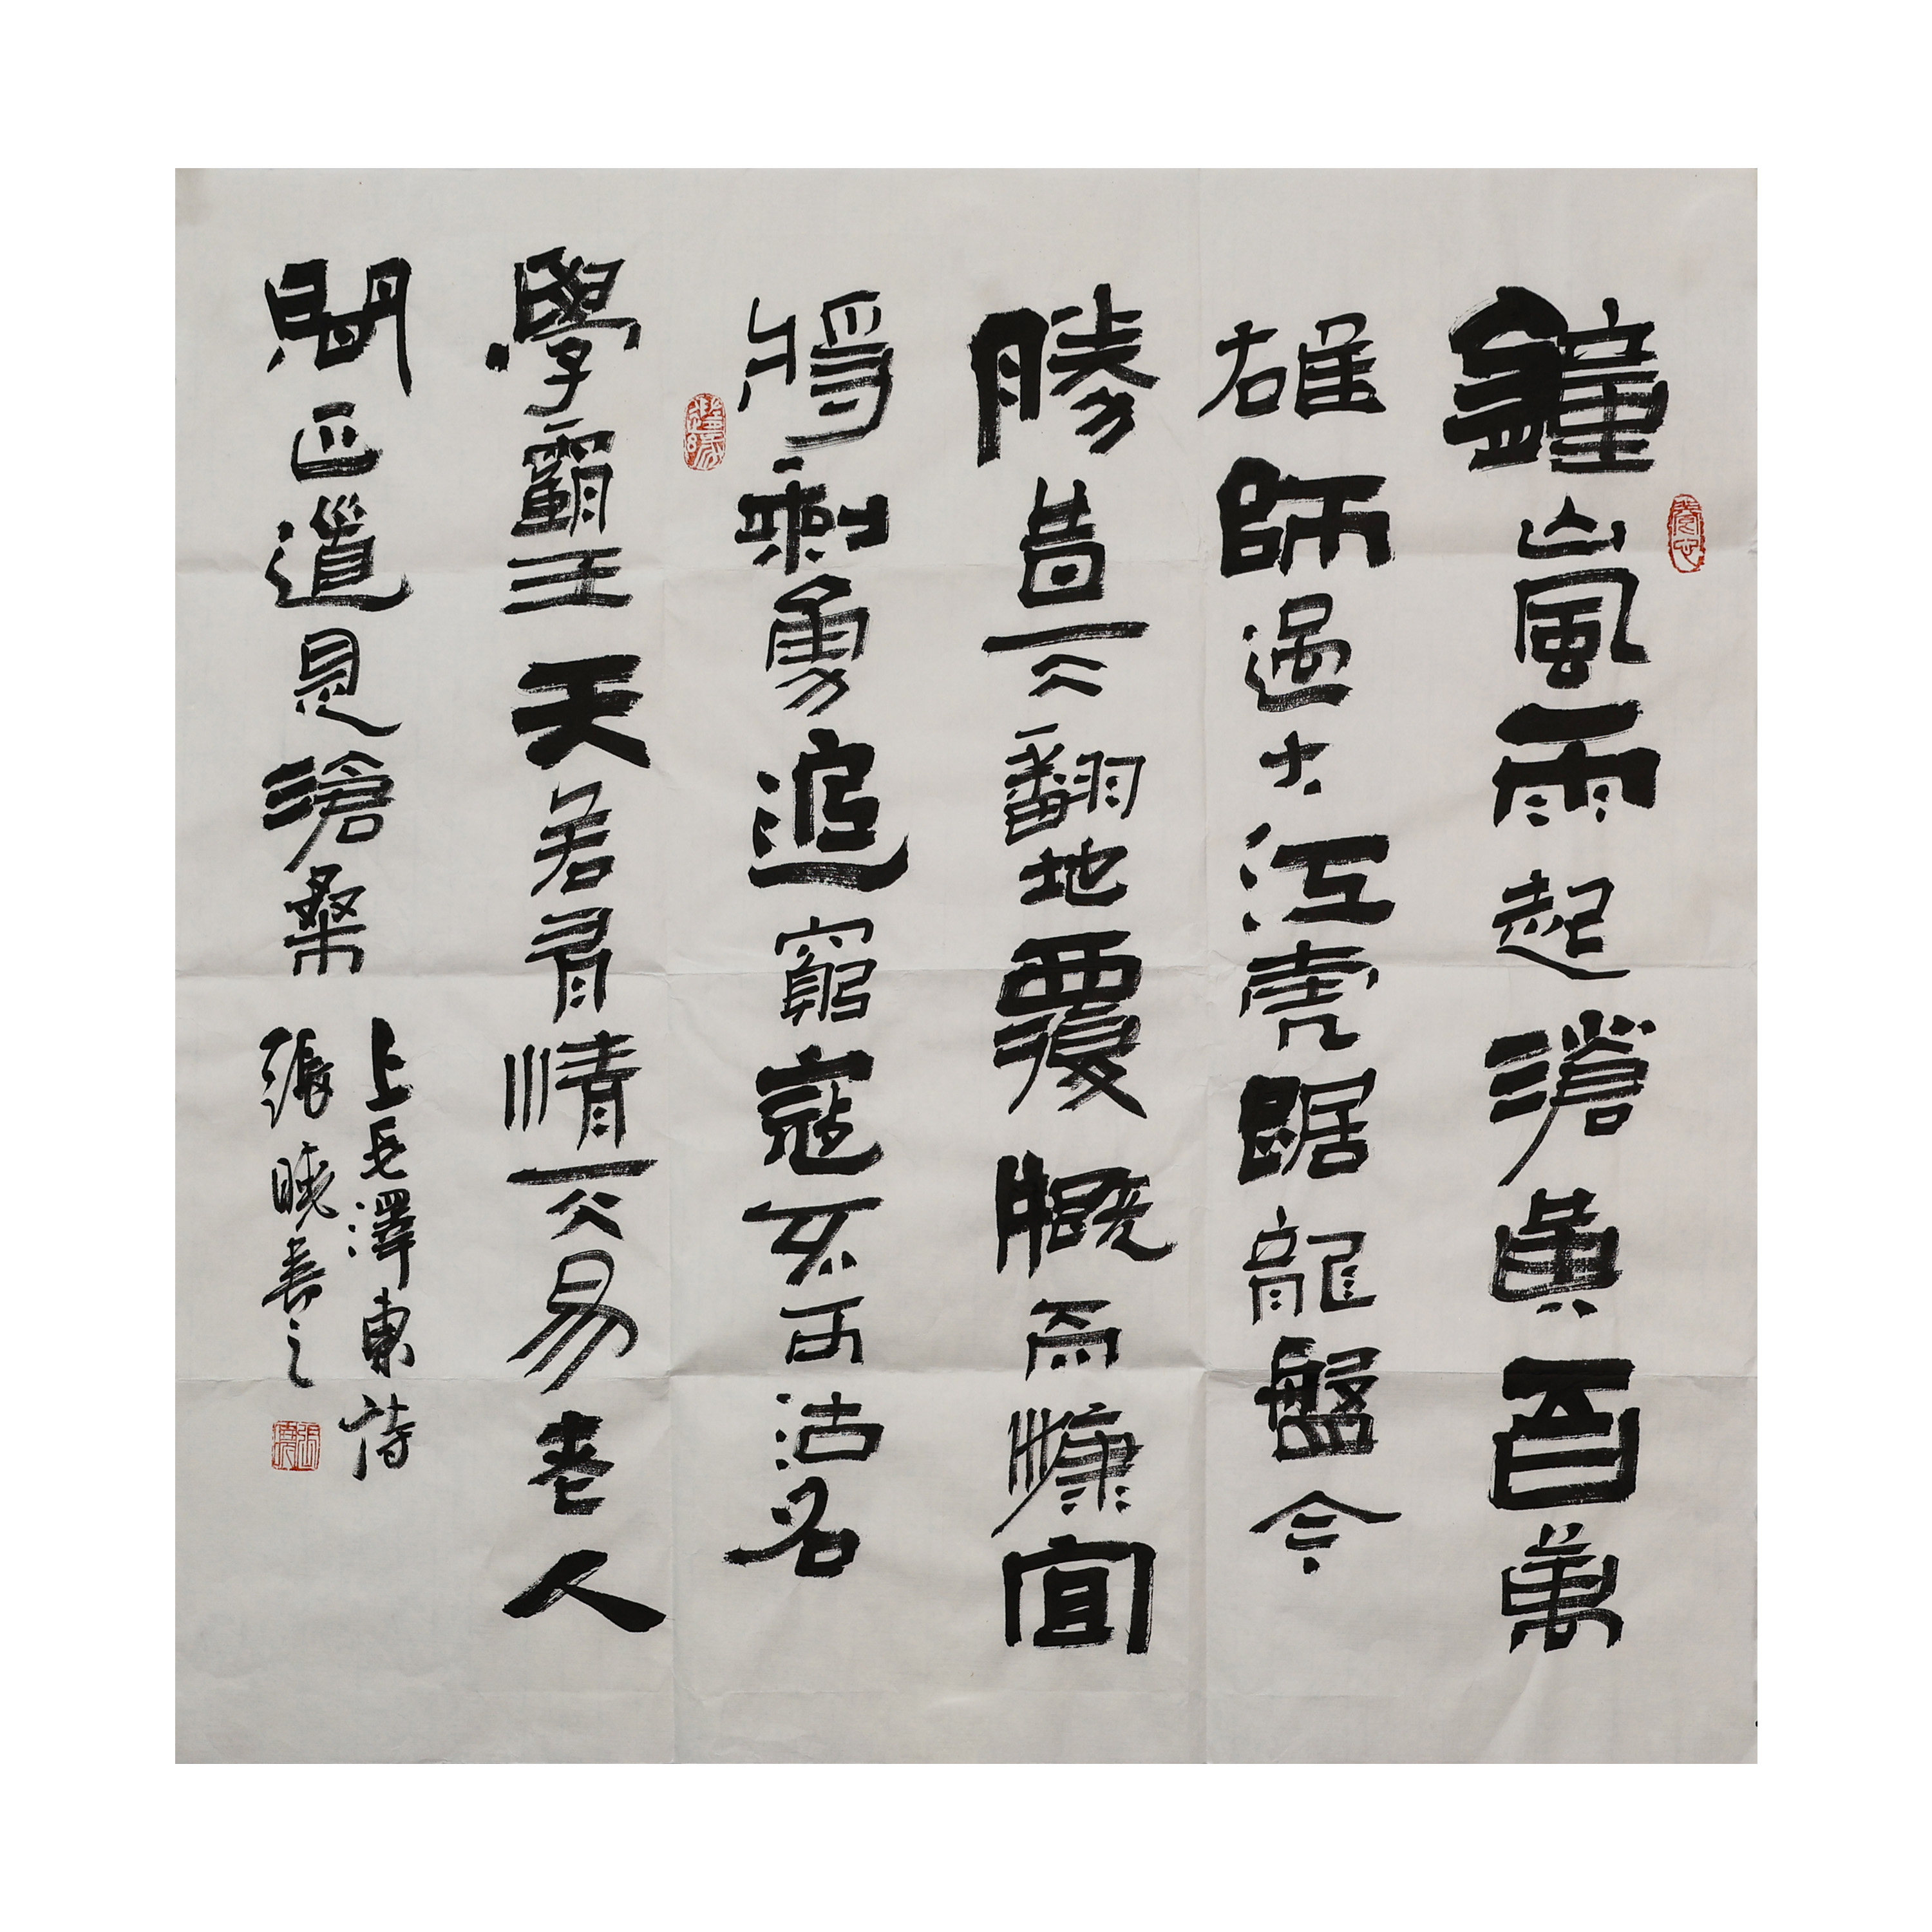 鐘山風雨起滄黃百萬
雄師過大江虎踞龍盤今
勝昔天翻地覆慨而慷宜
將剩勇追窮寇不可沽名
學霸王天若有情天易老人
間正道是滄桑
上毛澤東詩
張曉書之